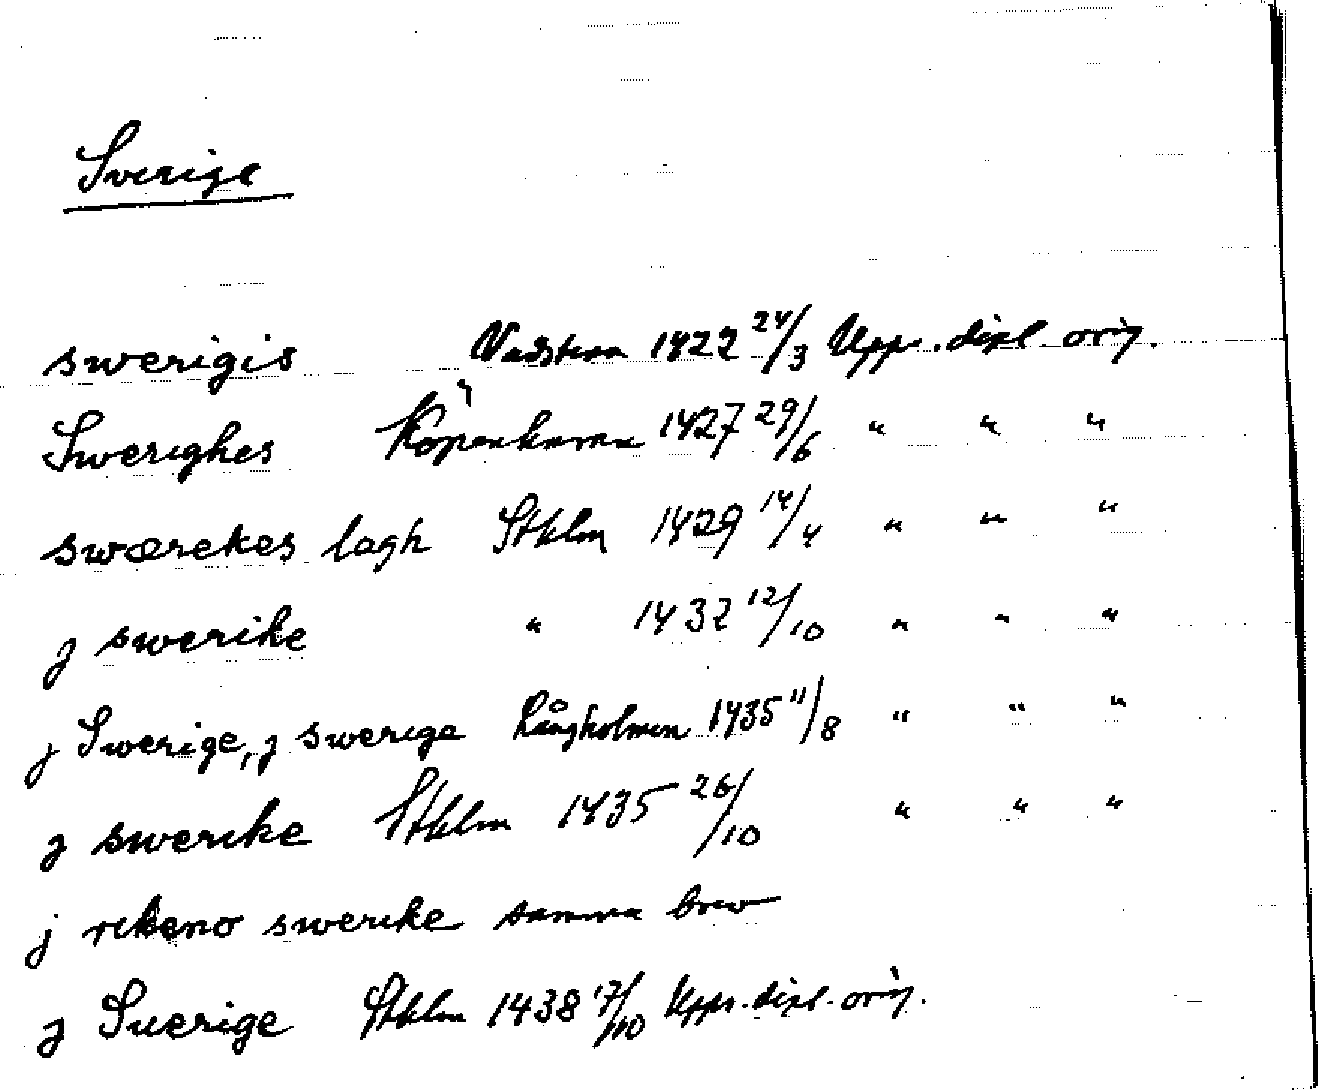 Sverige
swerigis Vadstena 1422 24/3 Upps. dipl. orig.
Swerighes Köpenhamn 1427 29/6 " " "
swærekes lagh Stklm 1429 14/4 " " "
j swerike " 1432 12/10 " " "
j Swerige, j swerige Långholmen 1435 11/8 " " "
j swerike Stklm 1435 26/10 " " "
j rikeno swerike samma brev
j Suerige Stklm 1438 17/10 Upps. dipl. orig.